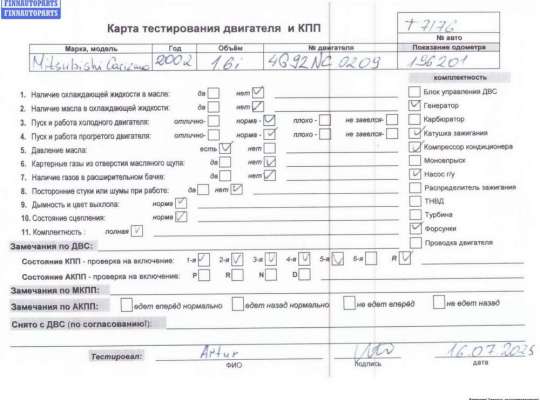 FINNAUTOPARTS
FINNAUTOPARTS
Карта тестирования двигателя и КПП
+7176
№ авто
Марка, модель Год Объём № двигателя Показание одометра
Mitsubishi Carizma 2002 1.6i 4G92NC 0209 196201
комплектность
1. Наличие охлаждающей жидкости в масле: да нет
2. Наличие масла в охлаждающей жидкости: да нет
3. Пуск и работа холодного двигателя: отлично- норма - плохо - не завелся-
4. Пуск и работа прогретого двигателя: отлично- норма - плохо - не завелся-
5. Давление масла: есть нет
6. Картерные газы из отверстия масляного щупа: да нет
7. Наличие газов в расширительном бачке: да нет
8. Посторонние стуки или шумы при работе: да нет
9. Дымность и цвет выхлопа: норма
10. Состояние сцепления: норма
11. Комплектность : полная
Блок управления ДВС
Генератор
Карбиратор
Катушка зажигания
Компрессор кондиционера
Моновпрыск
Насос г/у
Распределитель зажигания
ТНВД
Турбина
Форсунки
Проводка двигателя
Замечания по ДВС:
Состояние КПП - проверка на включение: 1-я 2-я 3-я 4-я 5-я 6-я R
Состояние АКПП - проверка на включение: P R N D
Замечания по МКПП:
Замечания по АКПП: едет вперёд нормально едет назад нормально не едет вперёд не едет назад
Снято с ДВС (по согласованию!):
Тестировал: Artur 16.07.2025
ФИО Подпись дата